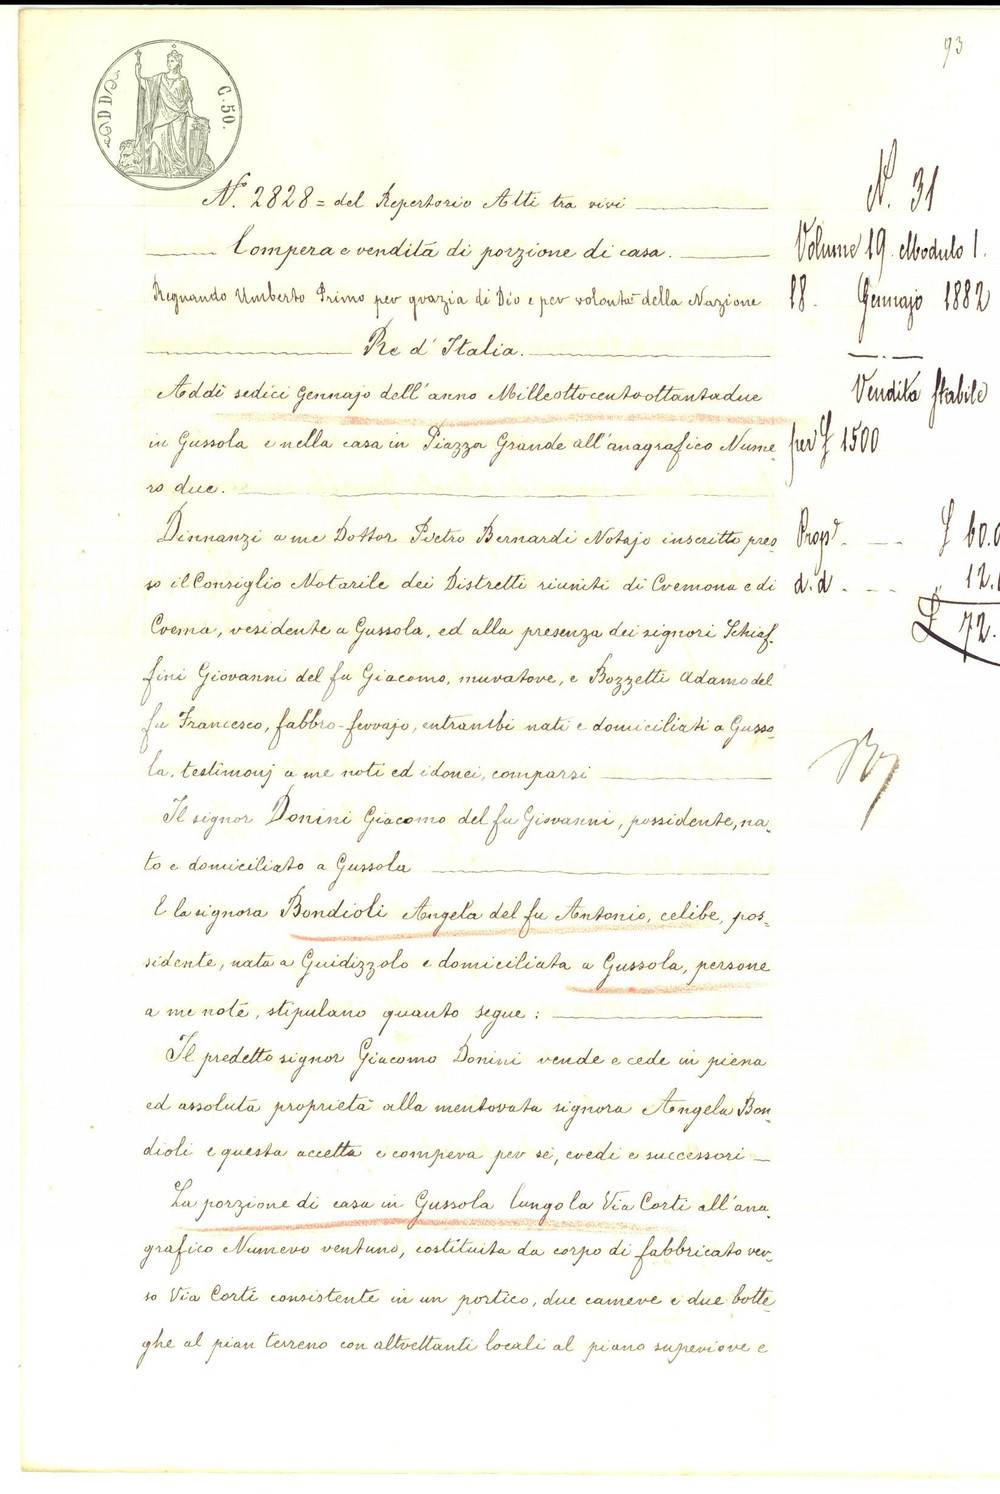 93
C. 50.
N.° 2828 = del Repertorio Atti tra vivi
Compera e vendita di porzione di casa.
Regnando Umberto Primo per grazia di Dio e per volontà della Nazione
Re d'Italia.
Addì sedici Gennajo dell'anno Milleottocentoottantadue
in Gussola e nella casa in Piazza Grande all'anagrafico Nume-
ro due.
Dinnanzi a me Dottor Pietro Bernardi Notajo inscritto pres-
so il Consiglio Notarile dei Distretti riuniti di Cremona e di
Crema, residente a Gussola, ed alla presenza dei signori Schief-
fini Giovanni del fu Giacomo, muratore, e Bozzetti Adamo del
fu Francesco, fabbro-ferrajo, entrambi nati e domiciliati a Gusso-
la, testimonj a me noti ed idonei, comparsi
Il signor Donini Giacomo del fu Giovanni, possidente, na-
to e domiciliato a Gussola
E la signora Bondioli Angela del fu Antonio, celibe, pos-
sidente, nata a Guidizzolo e domiciliata a Gussola, persone
a me note, stipulano quanto segue:
Il predetto signor Giacomo Donini vende e cede in piena
ed assoluta proprietà alla mentovata signora Angela Bon-
dioli e questa accetta e compera per sé, eredi e successori
La porzione di casa in Gussola lungo la Via Corti all'ana-
grafico Numero ventuno, costituita da corpo di fabbricato ver-
so Via Corti consistente in un portico, due camere e due botte-
ghe al pian terreno con altrettanti locali al piano superiore e
N. 31
Volume 19. Modulo 1.
18. Gennajo 1882
Vendita stabile
per £ 1500
Prop.e £ 60.0
d.d " 12.
£ 72.